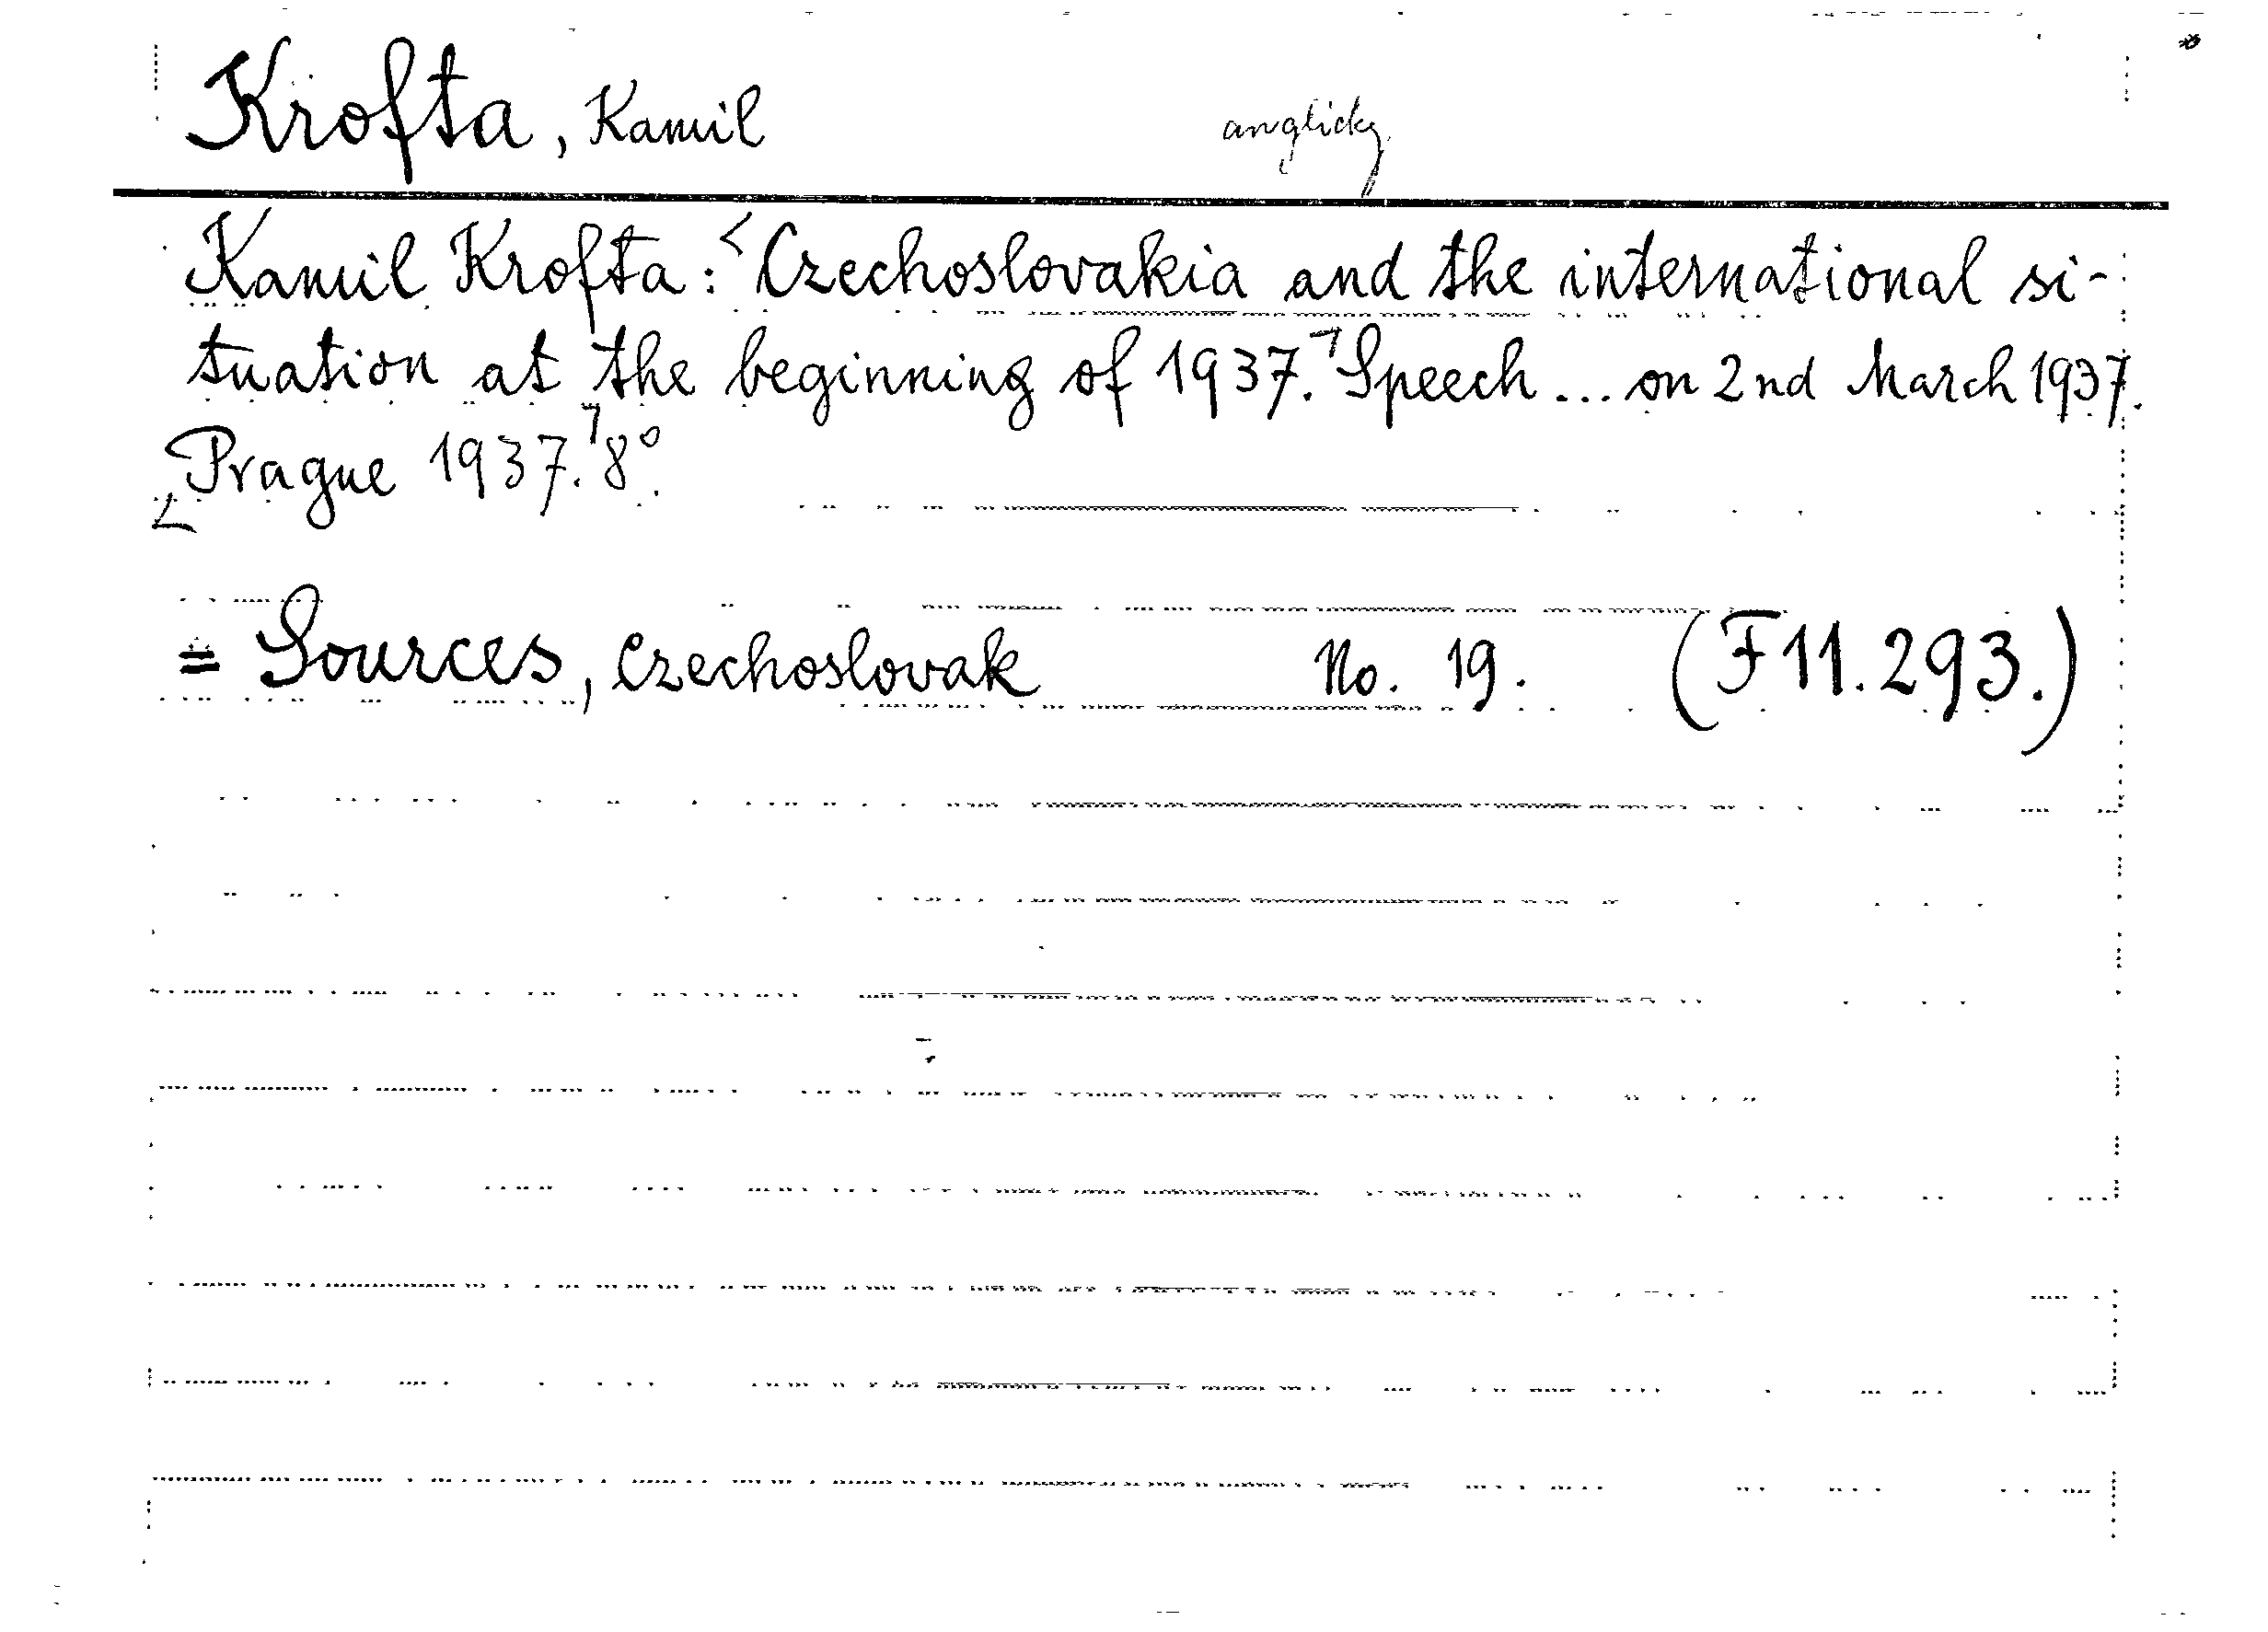 Krofta, Kamil anglicky
Kamil Krofta: Czechoslovakia and the international si-
tuation at the beginning of 1937. Speech... on 2nd March 1937.
Prague 1937. 8°.
= Sources, Czechoslovak No. 19. (F 11.293.)